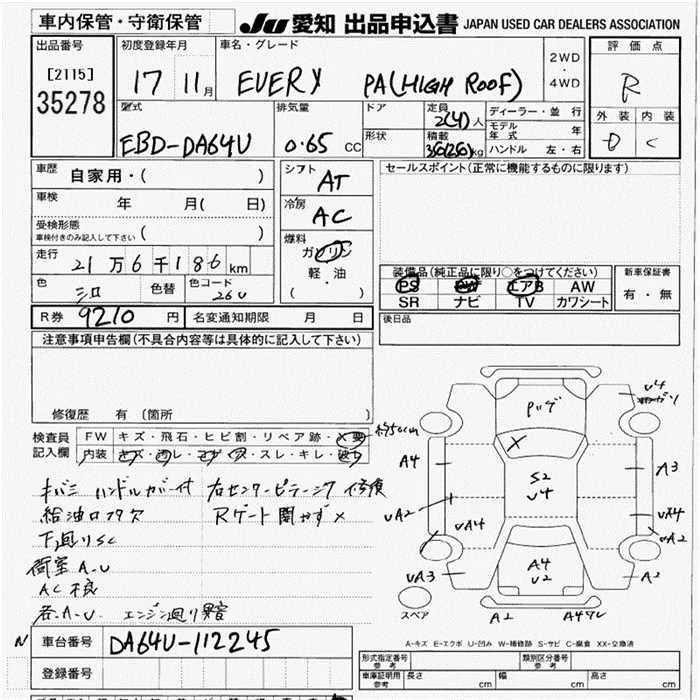 車内保管・守衛保管
JU 愛知 出品申込書 JAPAN USED CAR DEALERS ASSOCIATION
出品番号
[2115]
35278
初度登録年月
17 11月
車名・グレード
EVERY PA(HIGH ROOF)
2WD
・
4WD
評価点
R
型式
EBD-DA64V
排気量
0.65 CC
ドア
形状
定員
2(4)人
積載
350(250)kg
ディーラー・並行
モデル年式 年
ハンドル 左・右
外装 内装
D C
車歴 自家用・( )
車検 年 月( 日)
受検形態
車検付きのみ記入して下さい ( )
走行 21万6千186km
色 シロ 色替 色コード 26U
シフト AT
冷房 AC
燃料
ガソリン
軽・油
( )
セールスポイント(正常に機能するものに限ります)
装備品(純正品に限り○をつけてください)
PS PW エアB AW
SR ナビ TV カワシート
新車保証書
有・無
R券 9210円 名変通知期限 月 日
後日品
注意事項申告欄(不具合内容等は具体的に記入して下さい)
修復歴 有 〔箇所 〕
検査員記入欄
FW キズ・飛石・ヒビ割・リペア跡・X要
内装 キズ・汚レ・コゲ・穴・スレ・キレ・破レ
約50cm
キバミ ハンドルカバー付 右センターピラーインナ 修復
給油口フタ欠 Rゲート開かず×
下廻りSC
荷室A.U
AC不良
各A.U. エンジン廻り異音
Pいゲ
X
U4
A4
A3
S2
U4
UA2
UA4
UA4
UA2
UA3
A4
U2
A2
A2
A4ワレ
スペア
A-キズ E-エクボ U-凹み W-補修跡 S-サビ C-腐食 XX-交換済
N 車台番号 DA64V-112245
登録番号
形式指定番号
参考
類別区分番号
参考
車庫証明用
参考
長さ cm 幅 cm 高さ cm